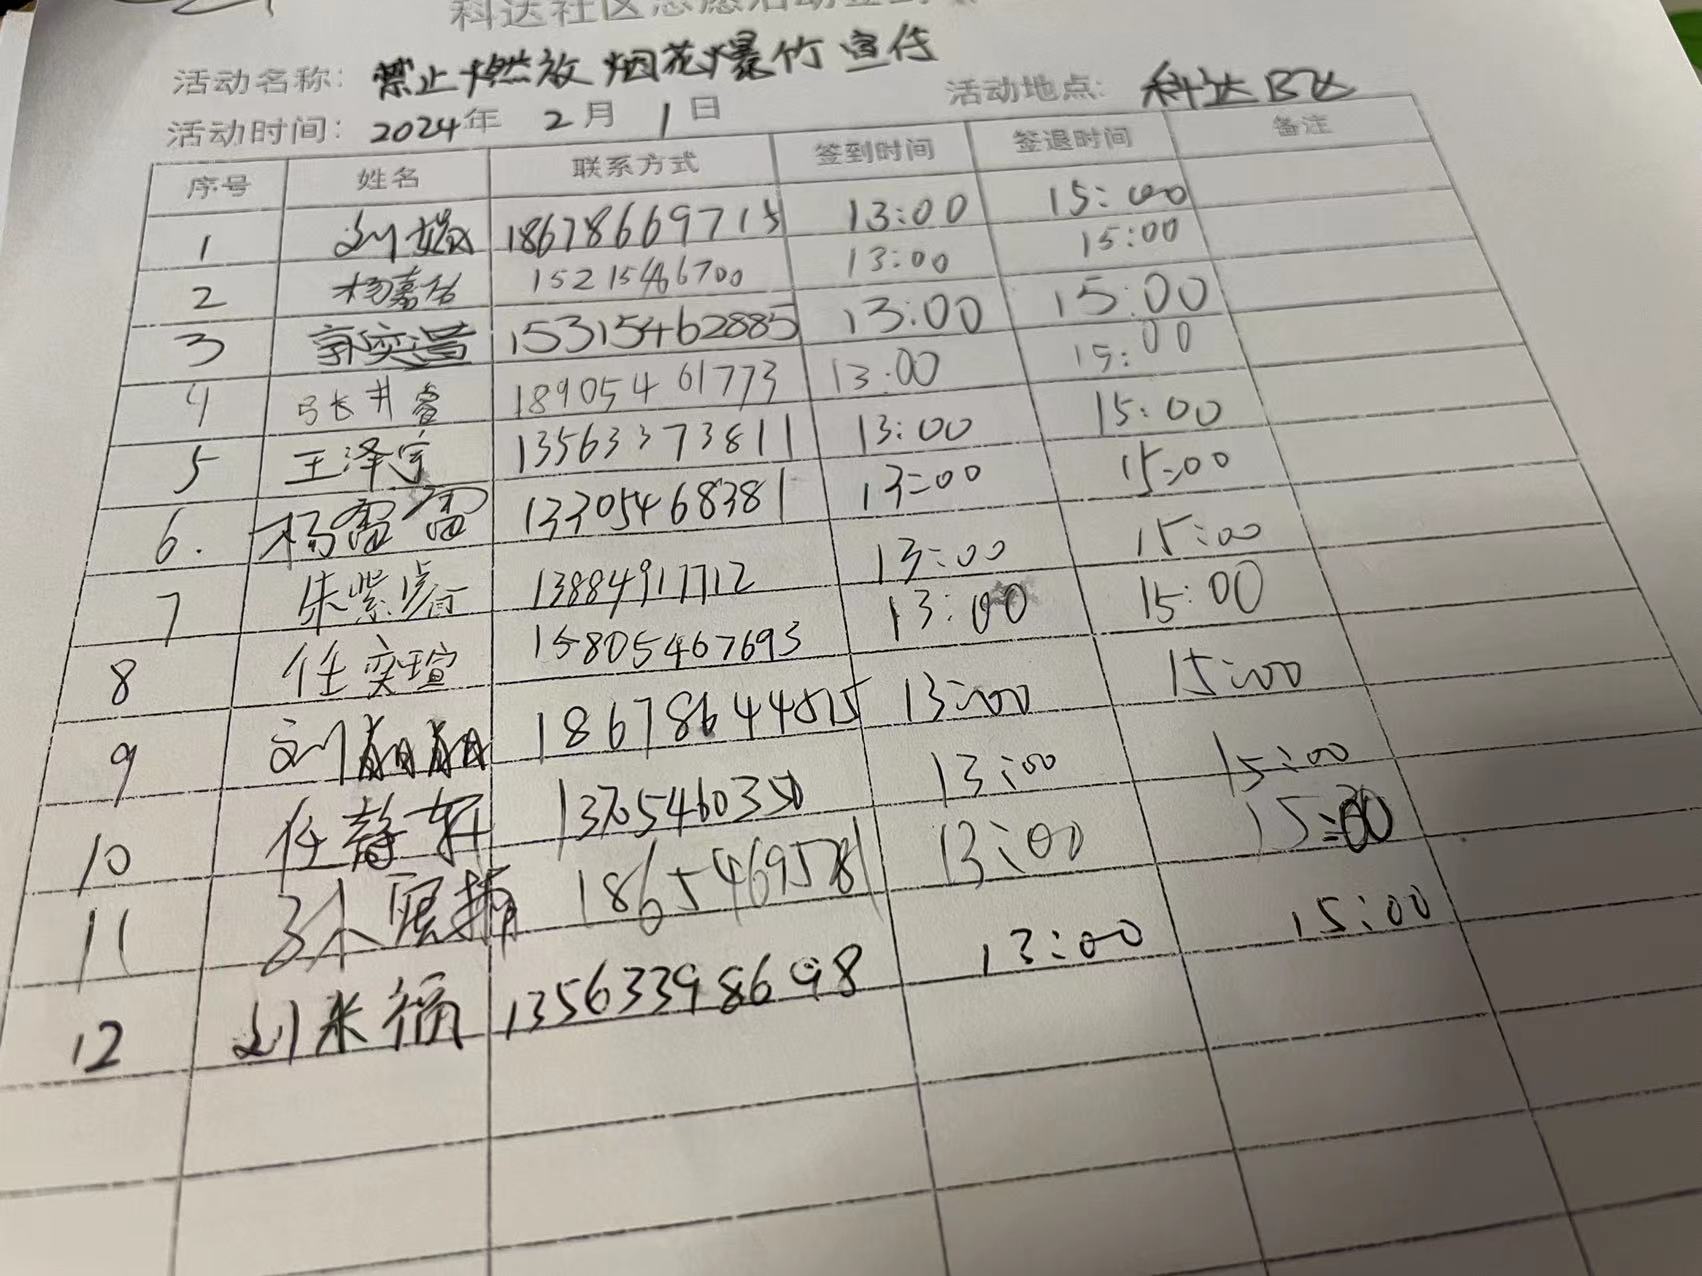 科达社区志愿活动签到
活动名称：禁止燃放烟花爆竹宣传
活动时间：2024年 2月 1日 活动地点：科达B区
序号 姓名 联系方式 签到时间 签退时间 备注
1 刘 18678669715 13:00 15:00
2 杨嘉 15215466700 13:00 15:00
3 郭奕 15315462885 13:00 15:00
4 张井睿 18905461773 13:00 15:00
5 王泽宇 13563373811 13:00 15:00
6. 杨雷雷 13305468381 13:00 15:00
7 朱紫 13884917712 13:00 15:00
8 任奕瑄 15805467693 13:00 15:00
9 刘萌萌 18678644515 13:00 15:00
10 任静轩 13705460350 13:00 15:00
11 孙展 18654695781 13:00 15:00
12 刘米福 13563398698 13:00 15:00